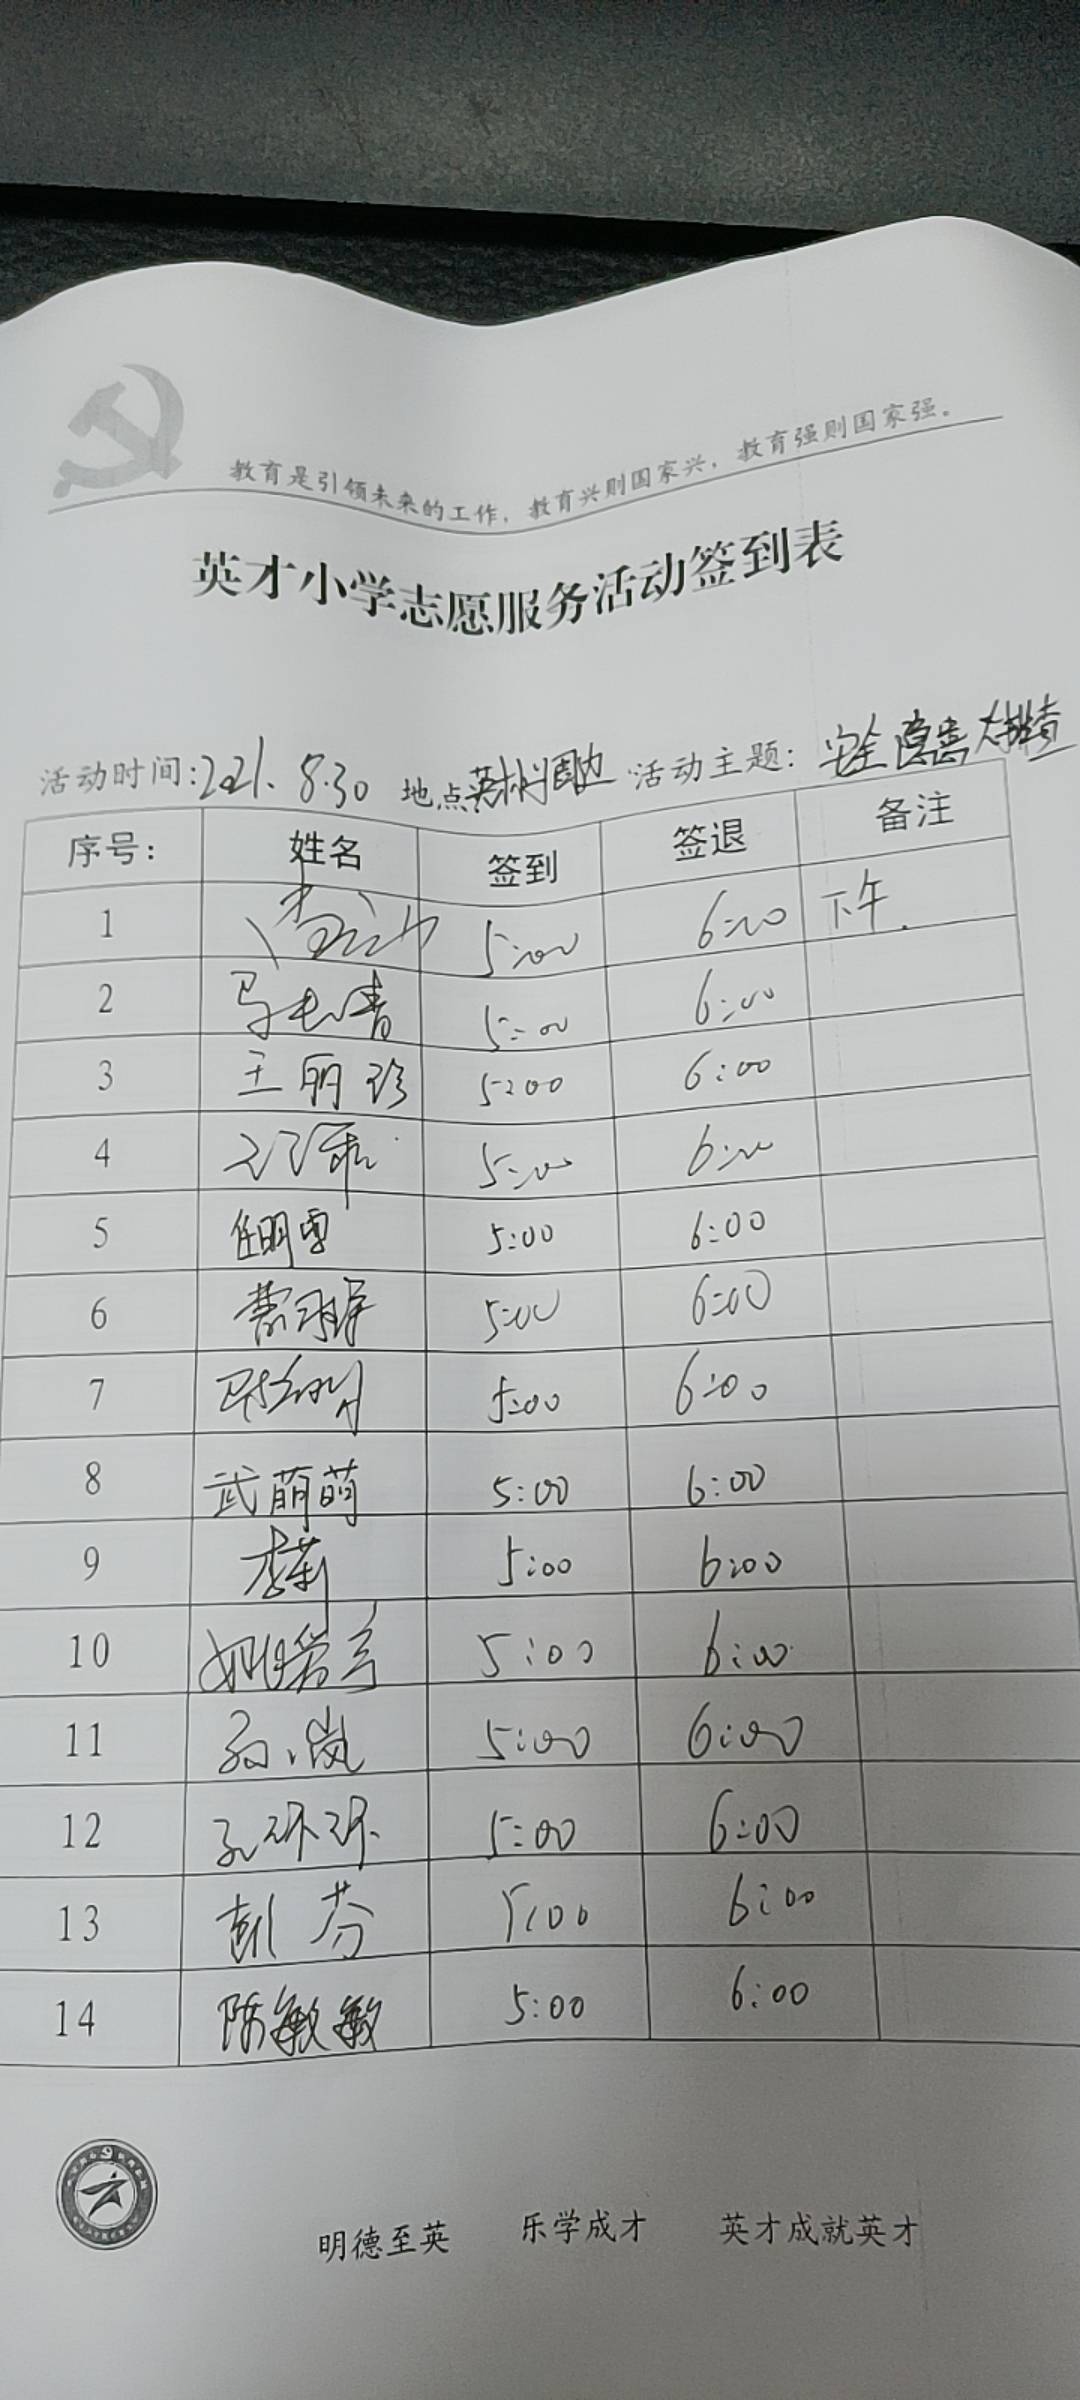 教育是引领未来的工作，教育兴则国家兴，教育强则国家强。
英才小学志愿服务活动签到表
活动时间:2021.8.30 地点英才小学周边 活动主题：安全隐患大排查
序号： 姓名 签到 签退 备注
1 5:00 6:00 下午.
2 5:00 6:00
3 王丽珍 5:00 6:00
4 5:00 6:00
5 任明雪 5:00 6:00
6 5:00 6:00
7 5:00 6:00
8 武萌萌 5:00 6:00
9 李莉 5:00 6:00
10 5:00 6:00
11 孙岚 5:00 6:00
12 孔环环 5:00 6:00
13 彭芬 5:00 6:00
14 陈敏敏 5:00 6:00
明德至英 乐学成才 英才成就英才